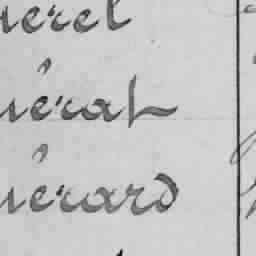 uerel
uérat
uérard